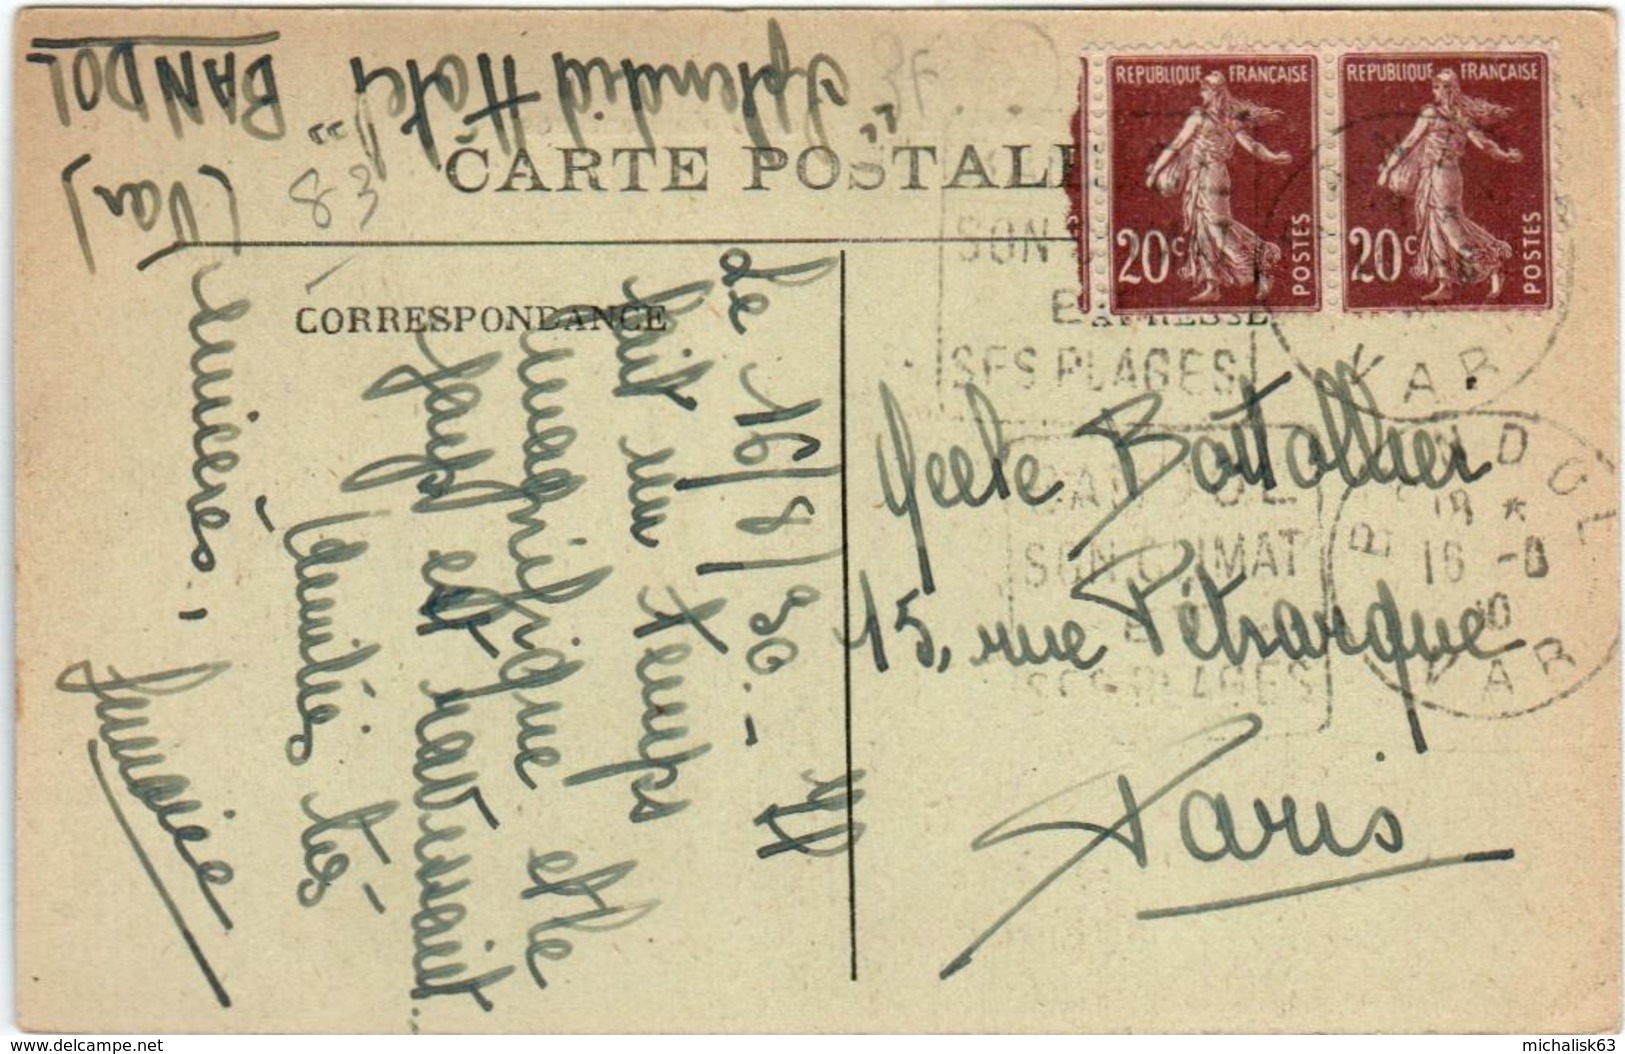 "Splendid Hotel"
BANDOL
(Var)
83
3F
CARTE POSTALE
CORRESPONDANCE
ADRESSE
REPUBLIQUE FRANÇAISE
20c POSTES
REPUBLIQUE FRANÇAISE
20c POSTES
SON CLIMAT
SES PLAGES
VAR
BANDOL
SON CLIMAT
SES PLAGES
BANDOL
18 *
16 -8
30
VAR
Le 16/8/30 - Il
fait un temps
magnifique et le
pays est ravissant...
Amitiés très
sincères,
Melle Bortollier
15, rue Pétrarque
Paris
www.delcampe.net
michalisk63